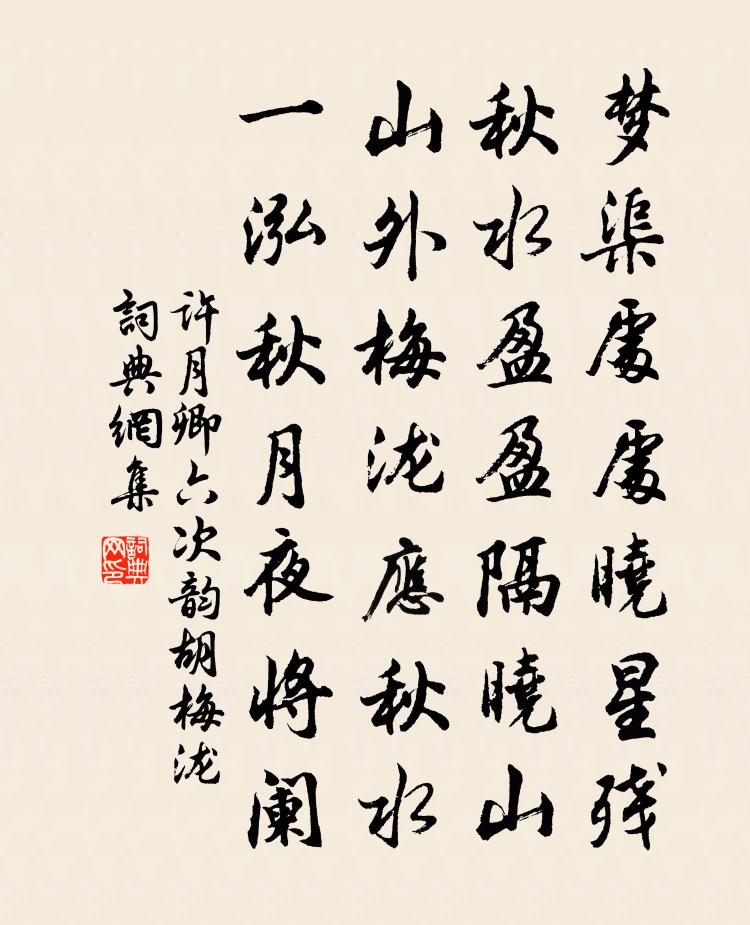 梦渠處處曉星残
秋水盈盈隔曉山
山外梅泷應秋水
一泓秋月夜将阑
许月卿六次韵胡梅泷
詞典網集
詞典网印